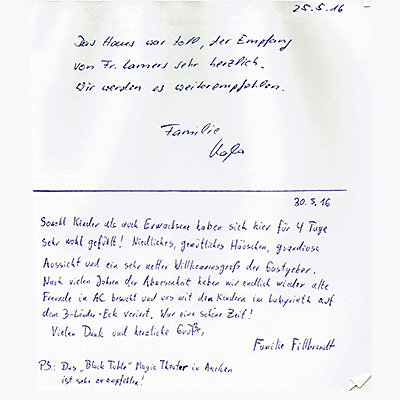 25.5.16
Das Haus war toll, der Empfang
von Fr. Lamers sehr herzlich.
Wir werden es weiterempfehlen.
Familie
30.5.16
Sowohl Kinder als auch Erwachsene haben sich hier für 4 Tage
sehr wohl gefühlt! Niedliches, gemütliches Häuschen, grandiose
Aussicht und ein sehr netter Willkommensgruß der Gastgeber.
Nach vielen Jahren der Abwesenheit haben wir endlich wieder alte
Freunde in AC besucht und uns mit den Kindern im Labyrinth auf
dem 3-Länder-Eck verirrt. War eine schöne Zeit!
Vielen Dank und herzliche Grüße,
Familie Fillbrandt
PS: Das "Black Table" Magic Theater in Aachen
ist sehr zu empfehlen!